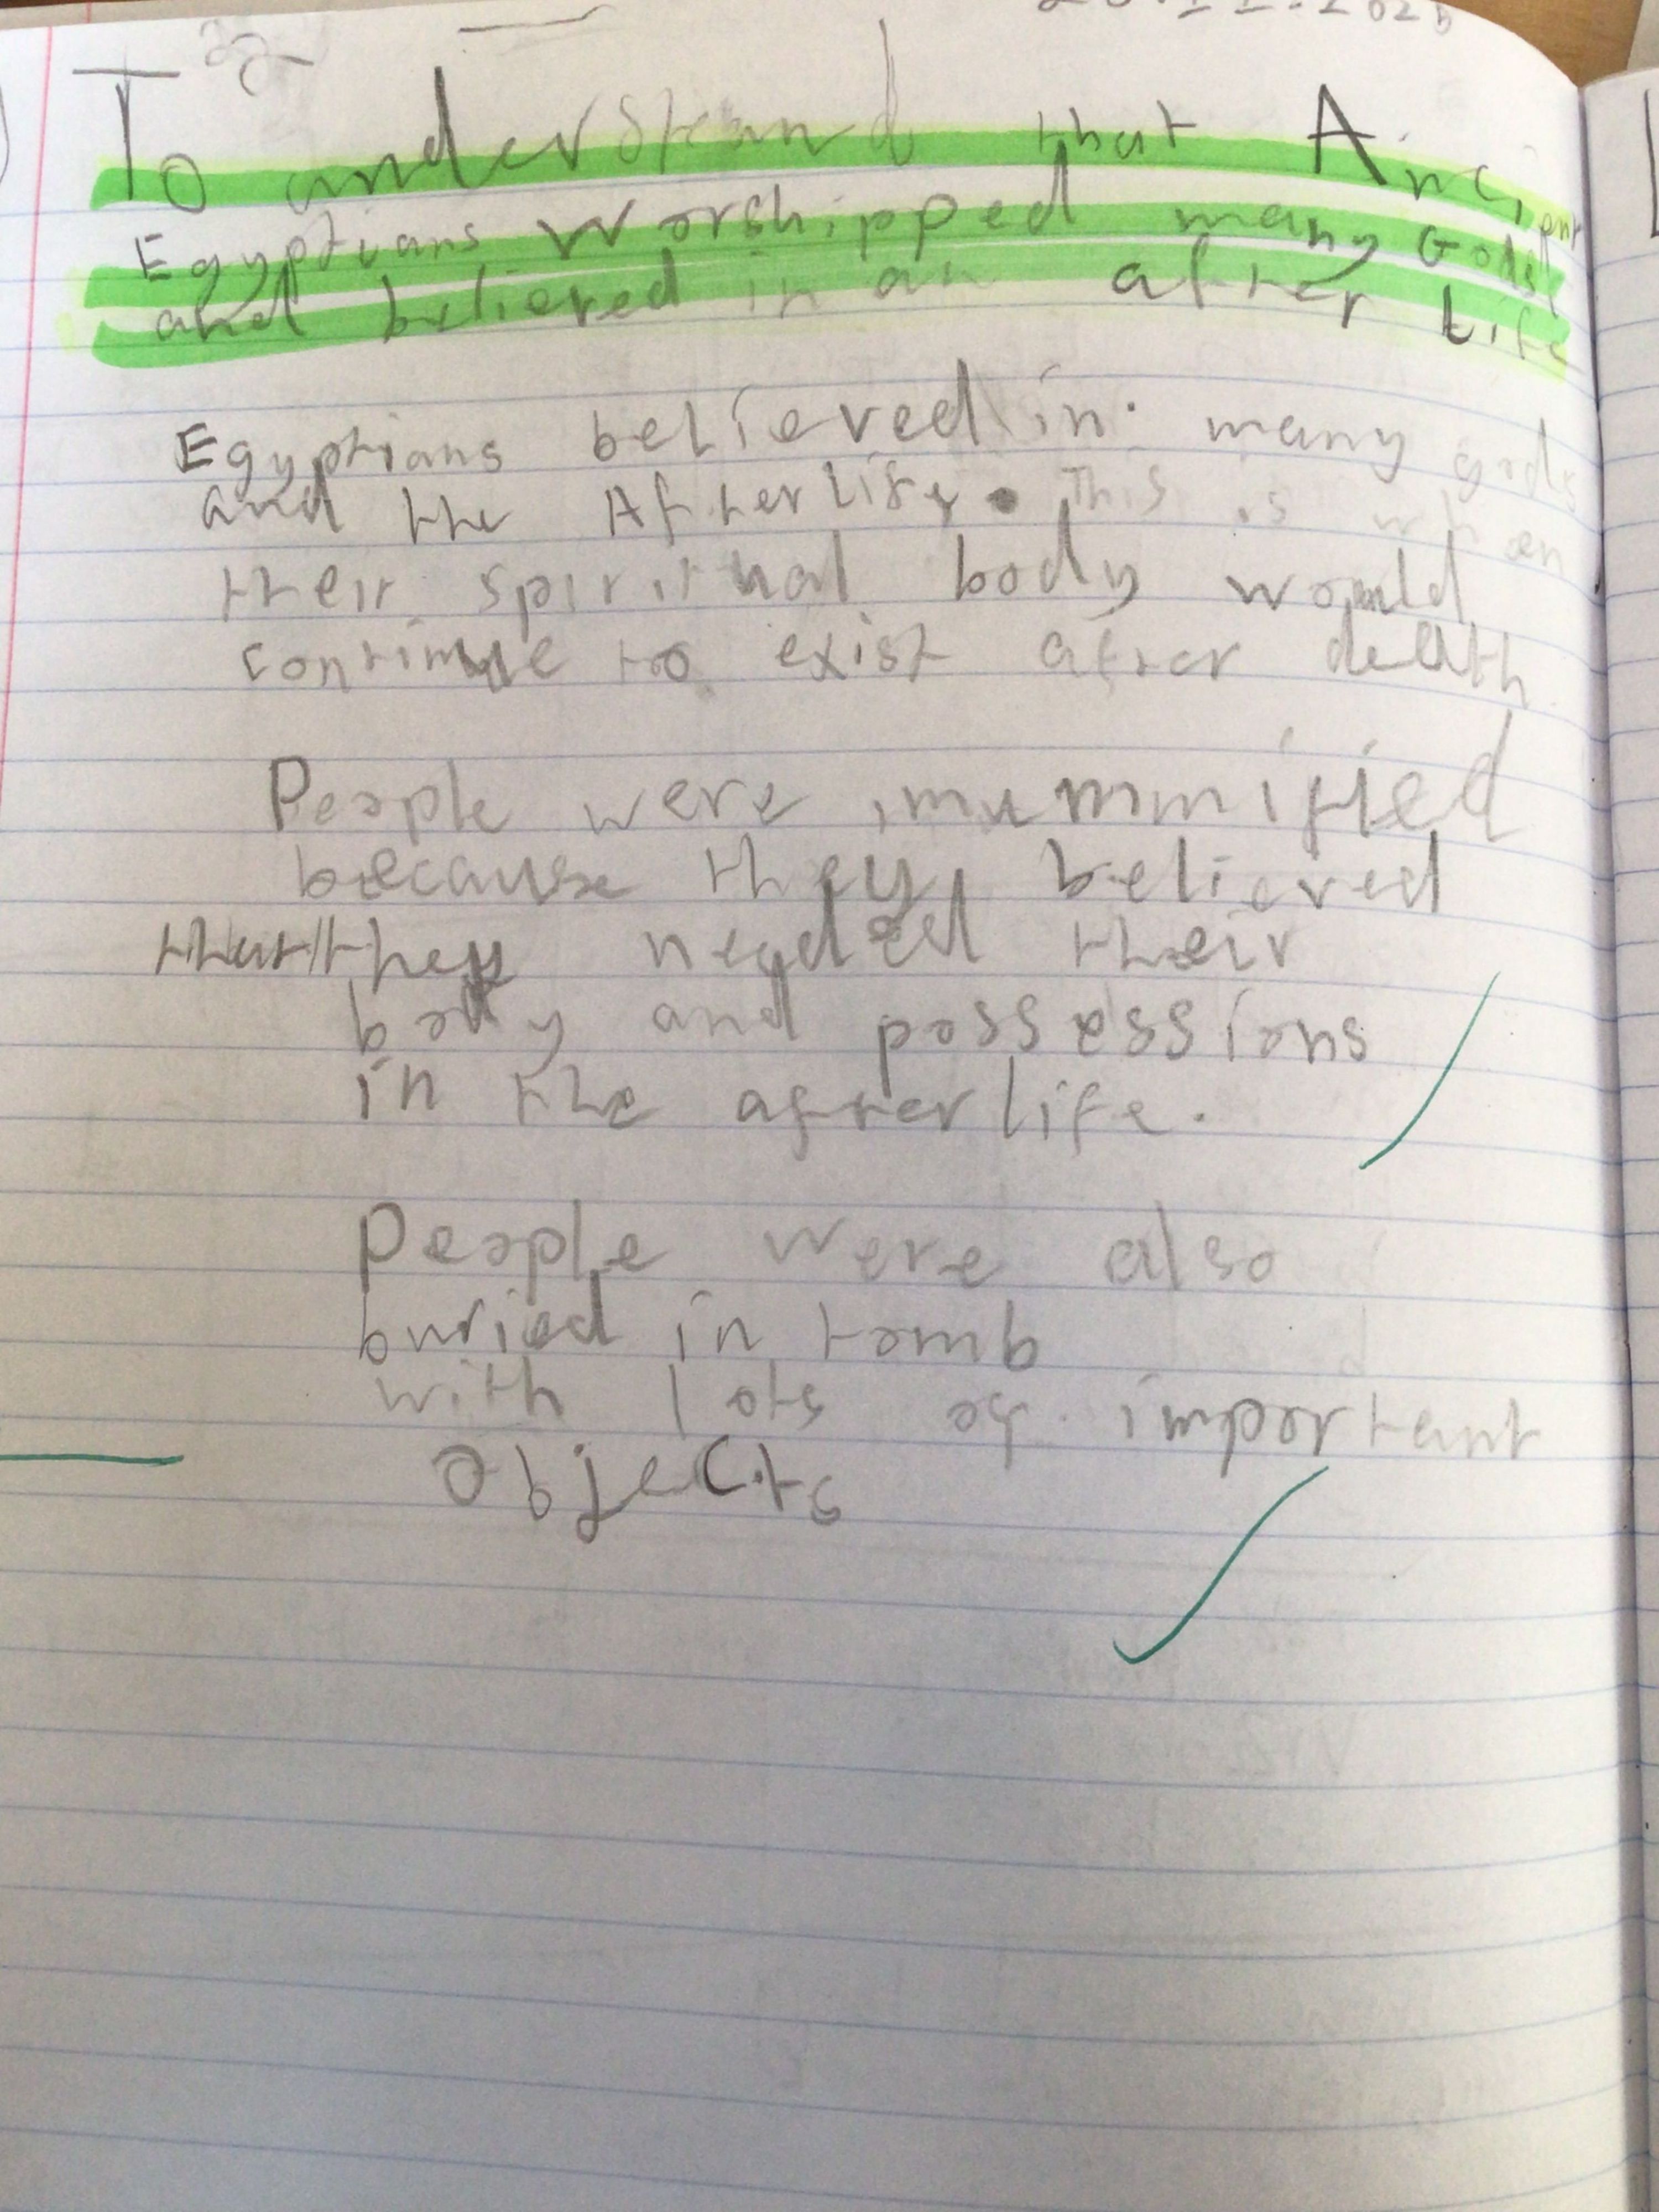 To understand that Ancient
Egyptians worshipped many Gods
and believed in an after Life
Egyptians believed in many gods
and the Afterlife. This is when
their spiritual body would
continue to exist after death
People were mummified
because they believed
that they needed their
body and possessions
in the afterlife.
People were also
buried in tomb
with lots of important
objects